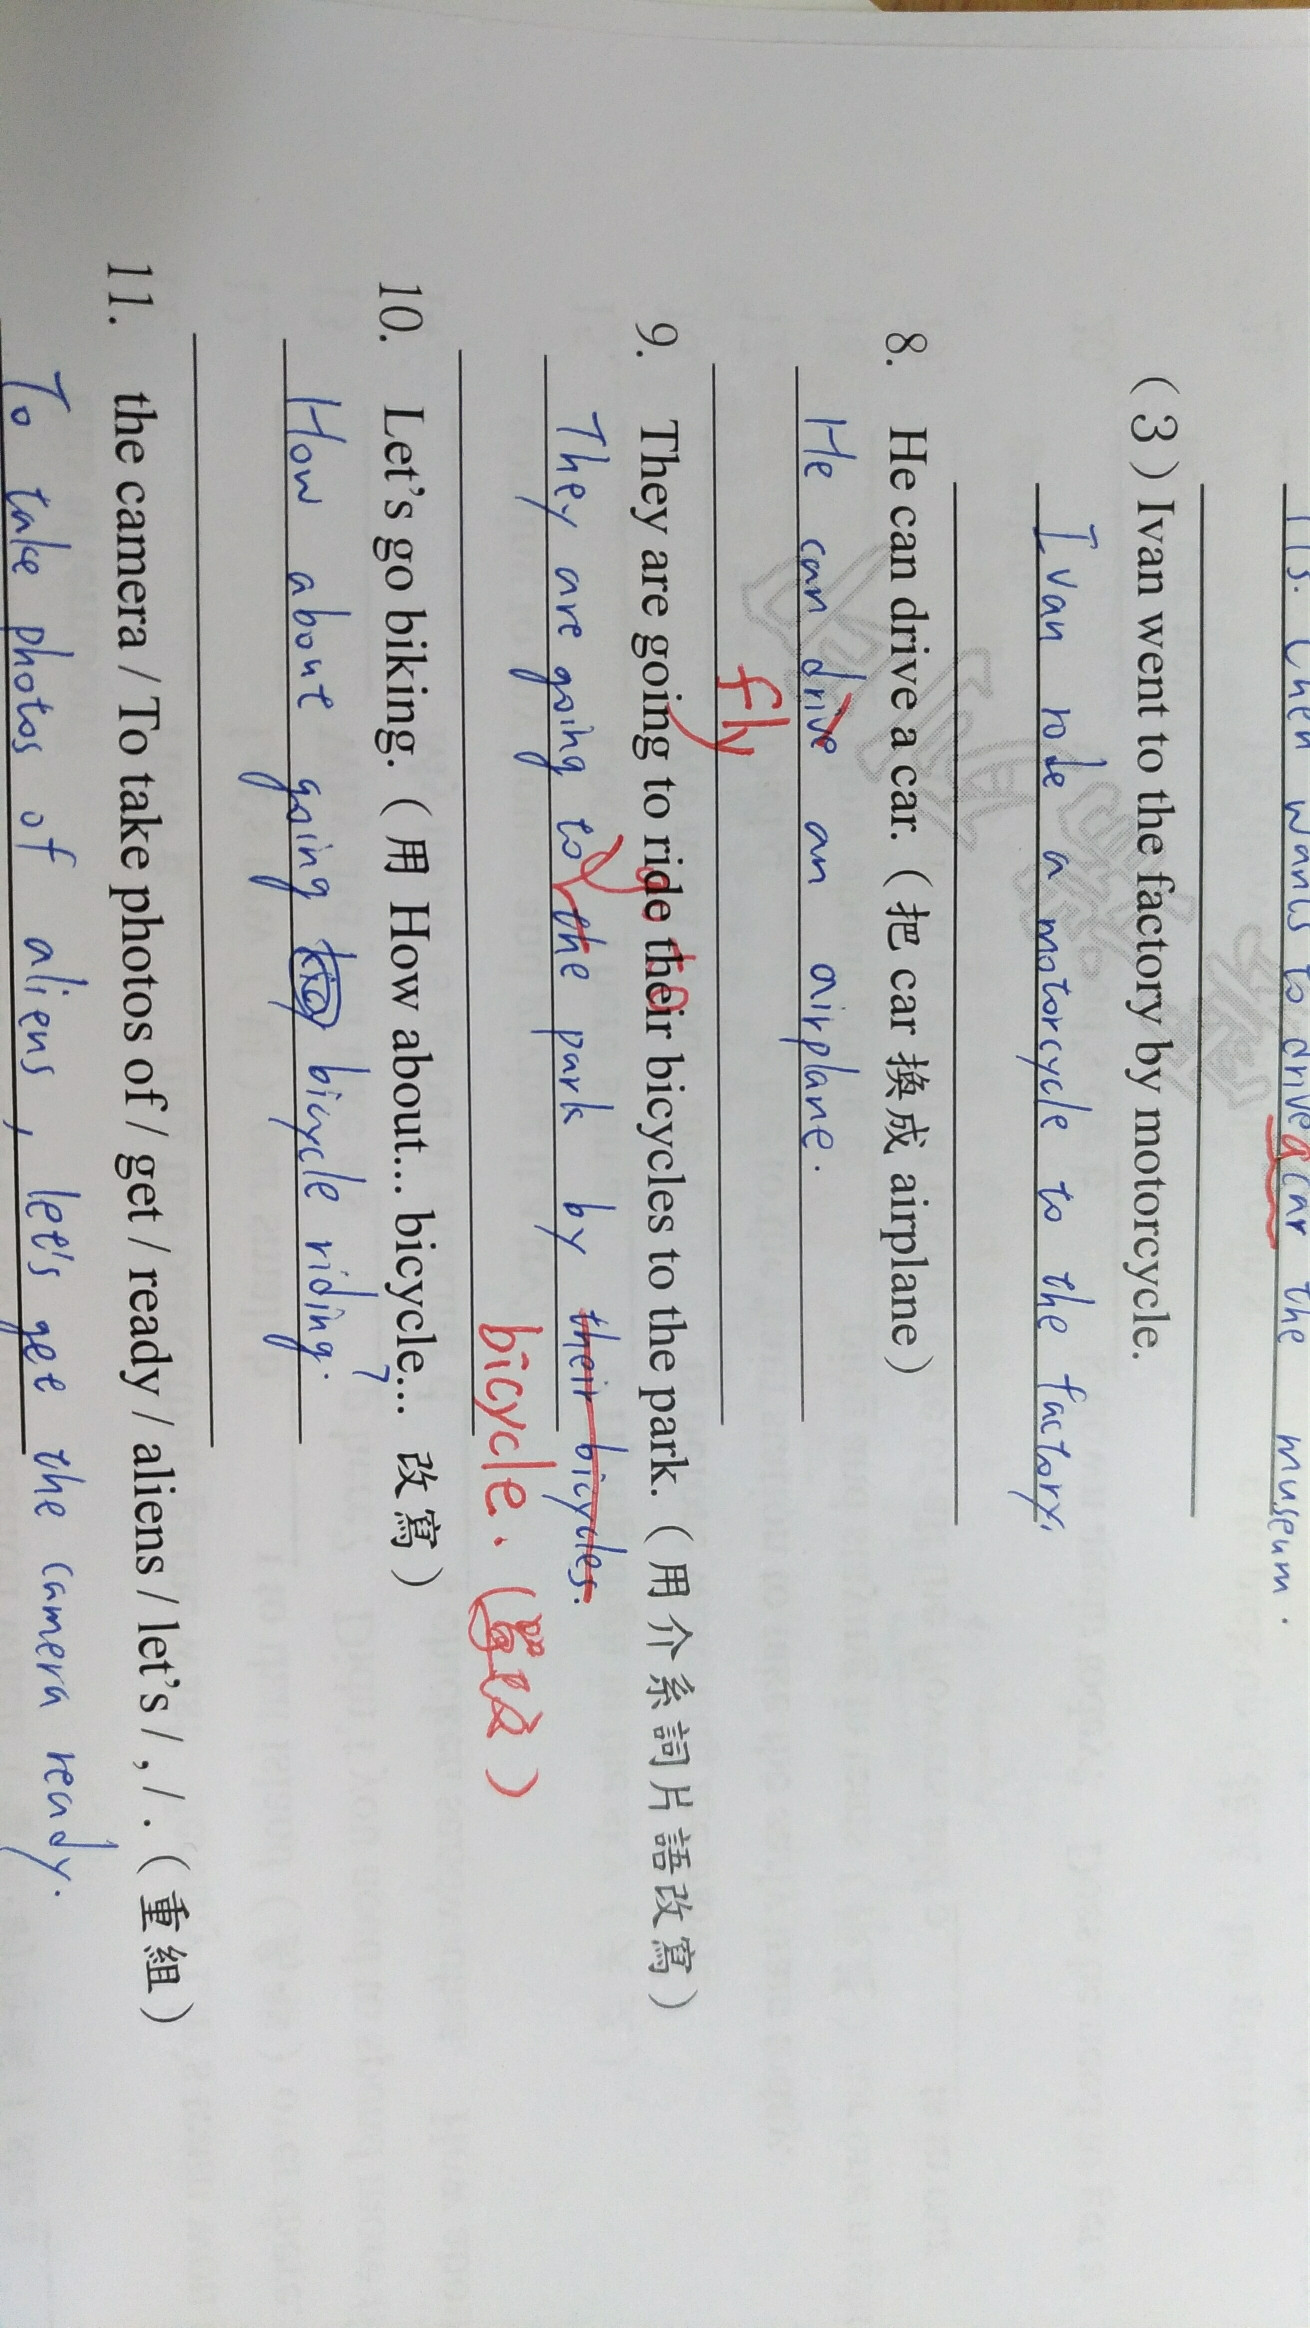 Chen wants to drive a car the museum.
(3) Ivan went to the factory by motorcycle.
Ivan rode a motorcycle to the factory.
8. He can drive a car.(把 car 換成 airplane)
He can drive an airplane.
fly
9. They are going to ride their bicycles to the park.(用介系詞片語改寫)
go to
They are going to the park by their bicycles.
bicycle. (單數)
10. Let's go biking.(用 How about... bicycle... 改寫)
How about going bicycle riding. ?
11. the camera / To take photos of / get / ready / aliens / let's / , / .(重組)
To take photos of aliens, let's get the camera ready.